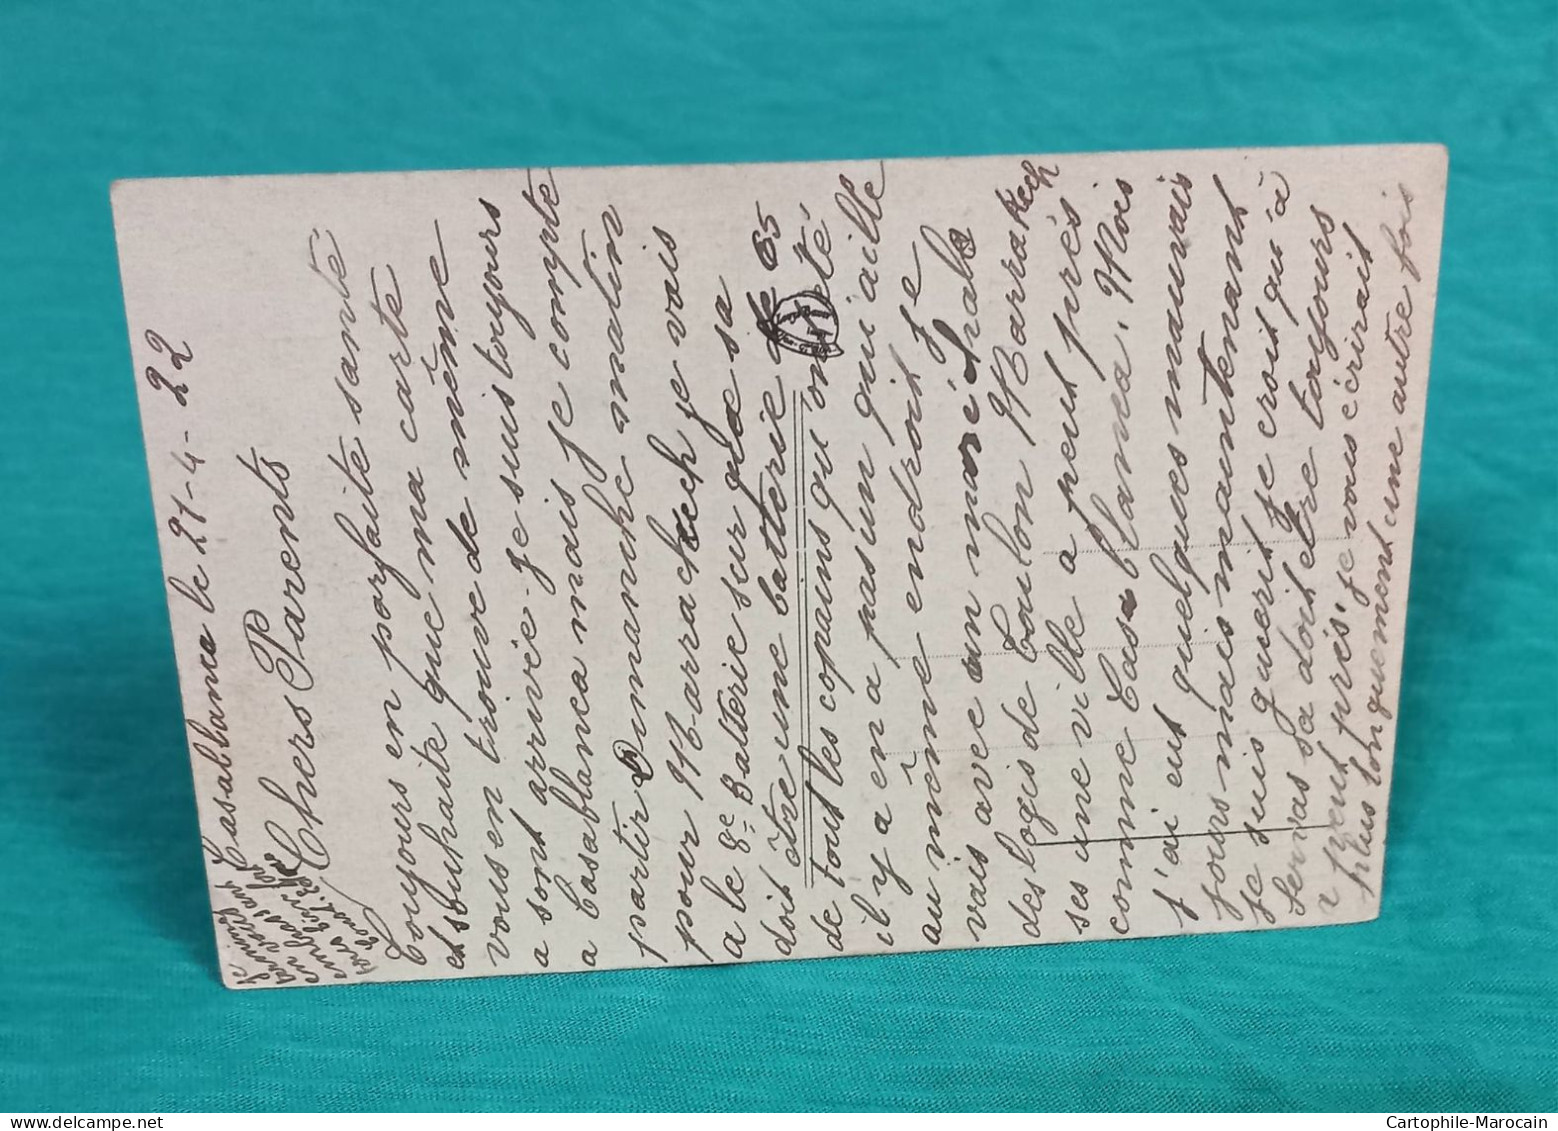 Casablanca le 21-4-22
Chers Parents
Toujours en parfaite santé
et souhaite que ma carte
vous en trouve de même
a sont arrivée. je suis toujours
a Casablanca mais je compte
partir Dimanche matin
pour Marrackech je vais
a le 8e Batterie sur que sa
doit être une batterie de 65
de tout les copains qu'on été
il y en a pas un qui aille
au même endroit je
vais avec un maréchale
des logis de Toulon Marrakech
ses une ville a peut près
comme Casablanca. Mois
j'ai eut quelques mauvais
jours mais maintenant
je suis guerit je croit qu'à
Servas sa doit etre toujours
a peut près, je vous écrirait
plus longuement une autre fois
je
termine
en vous
embrassant
Cartophile-Marocain